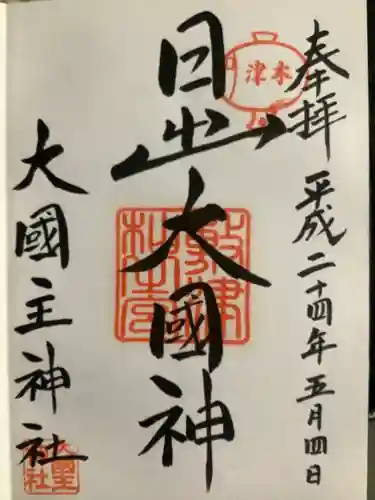 奉拝 平成二十四年五月四日
木津
日出大國神
敷津
大國主神社